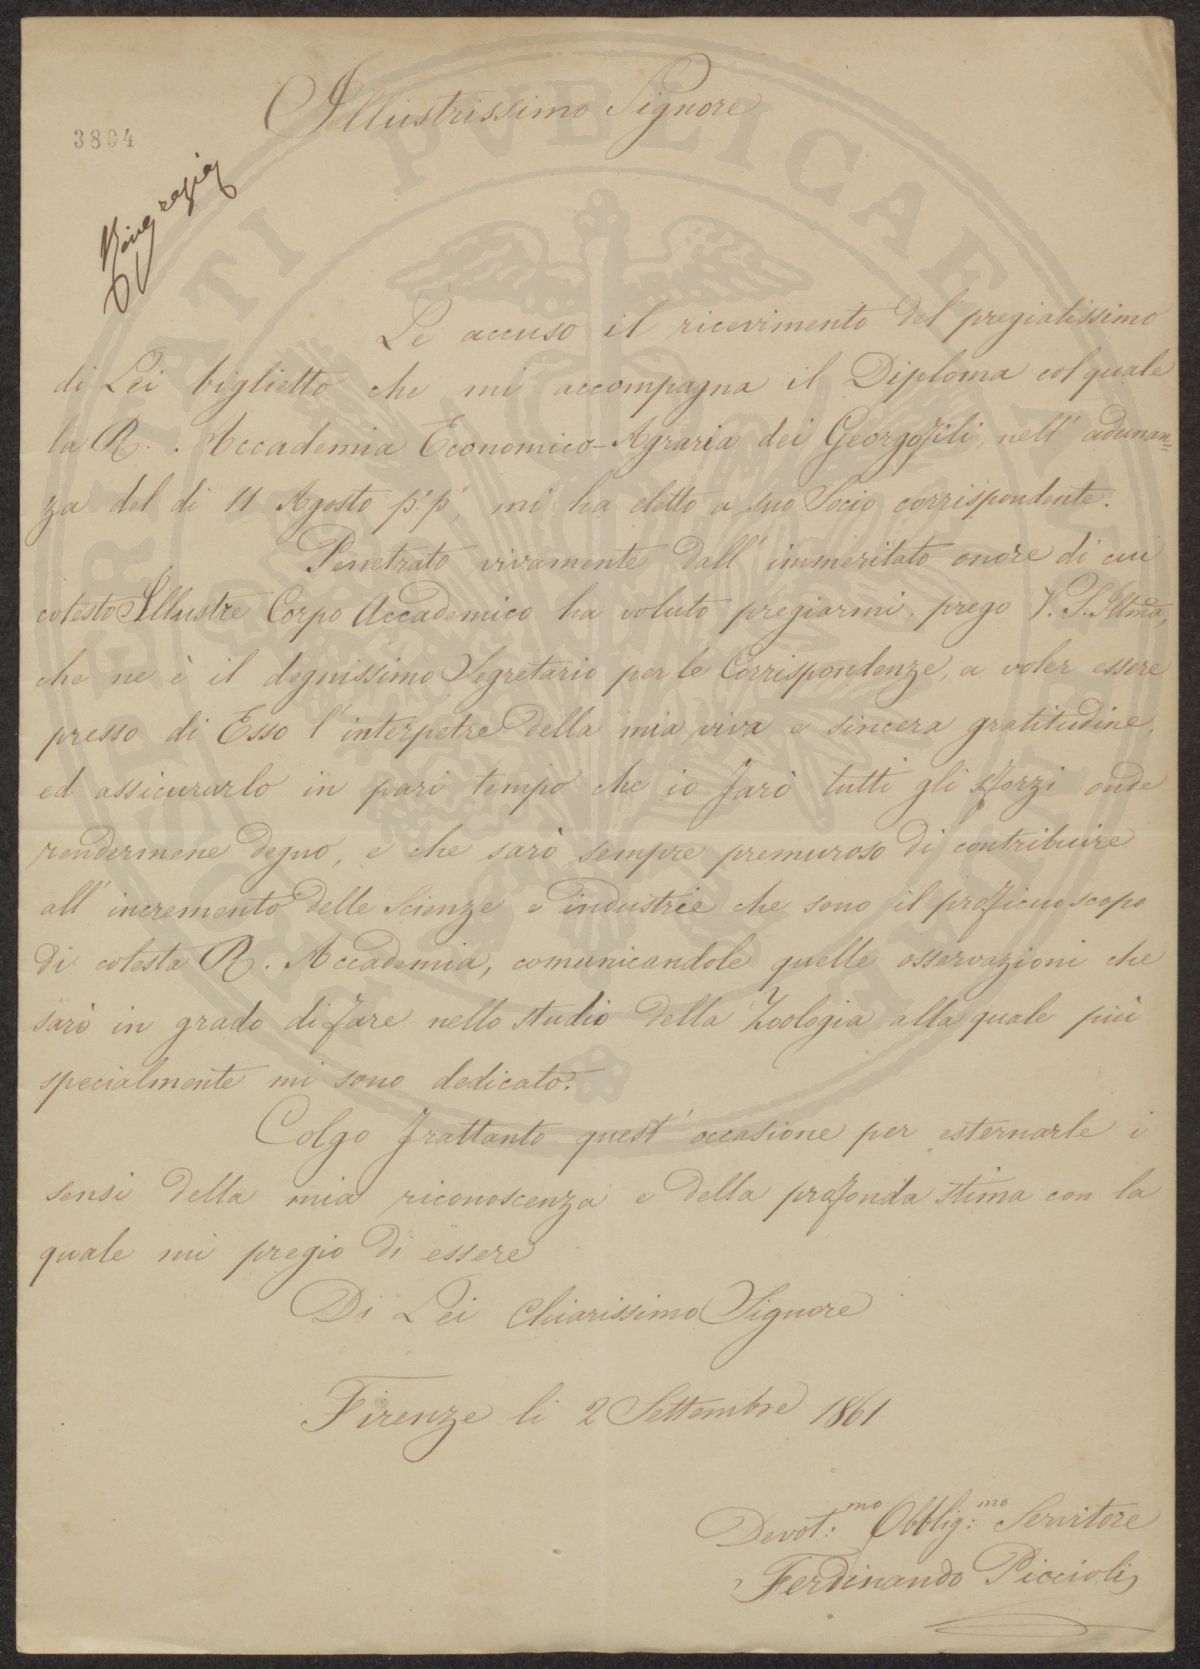 Illustrissimo Signore
3804
Ringrazia
Le accuso il ricevimento del pregiatissimo
di Lei biglietto che mi accompagna il Diploma col quale
la R. Accademia Economico-Agraria dei Georgofili, nell' adunan=
za del dì 11 Agosto p.º p.º, mi ha eletto a suo Socio corrispondente.
Penetrato vivamente dall' immeritato onore di cui
cotesto Illustre Corpo Accademico ha voluto pregiarmi, prego V. S. Illma,
che ne è il degnissimo Segretario per le Corrispondenze, a voler essere
presso di Esso l' interpetre della mia viva e sincera gratitudine,
ed assicurarlo in pari tempo che io farò tutti gli sforzi onde
rendermene degno, e che sarò sempre premuroso di contribuire
all' incremento delle Scienze e industrie che sono il proficuo scopo
di cotesta R. Accademia, comunicandole quelle osservazioni che
sarò in grado di fare nello studio della Zoologia alla quale più
specialmente mi sono dedicato.
Colgo frattanto quest' occasione per esternarle i
sensi della mia riconoscenza e della profonda stima con la
quale mi pregio di essere
Di Lei Chiarissimo Signore
Firenze li 2 Settembre 1861
Devot:mo Obblig:mo Servitore
Ferdinando Piccioli